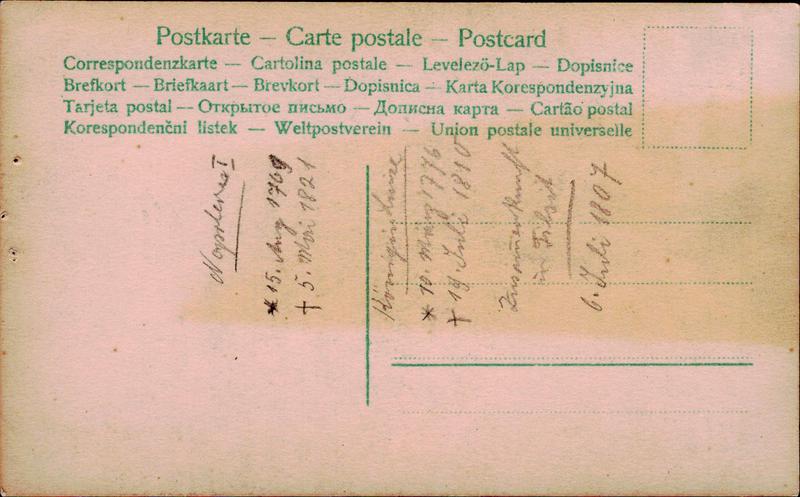 Postkarte — Carte postale — Postcard
Correspondenzkarte — Cartolina postale — Levelező-Lap — Dopisnice
Brefkort — Briefkaart — Brevkort — Dopisnica — Karta Korespondenzyjna
Tarjeta postal — Открытое письмо — Дописна карта — Cartão postal
Korespondenční listek — Weltpostverein — Union postale universelle
Napoleon I
* 15. Aug 1769
† 5. Mai 1821
Königin Luise
* 10. März 1776
† 19. Juli 1810
Zusammenkunft
in Tilsit
6. Juli 1807